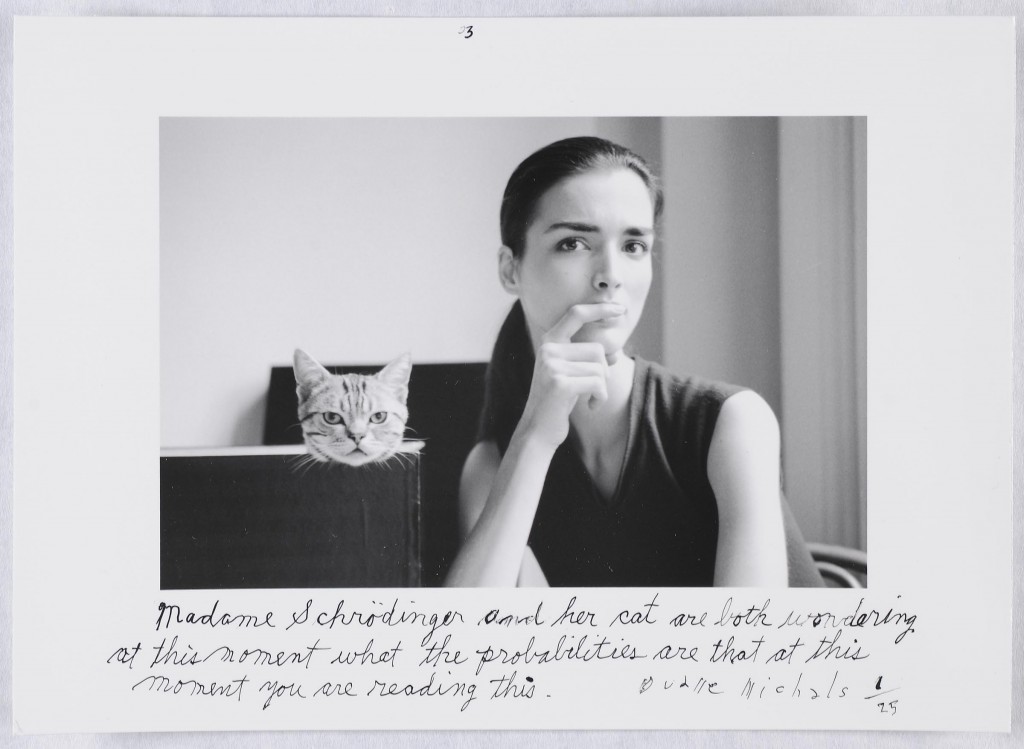 33
Madame Schrödinger and her cat are both wondering
at this moment what the probabilities are that at this
moment you are reading this. Duane Michals 1/25